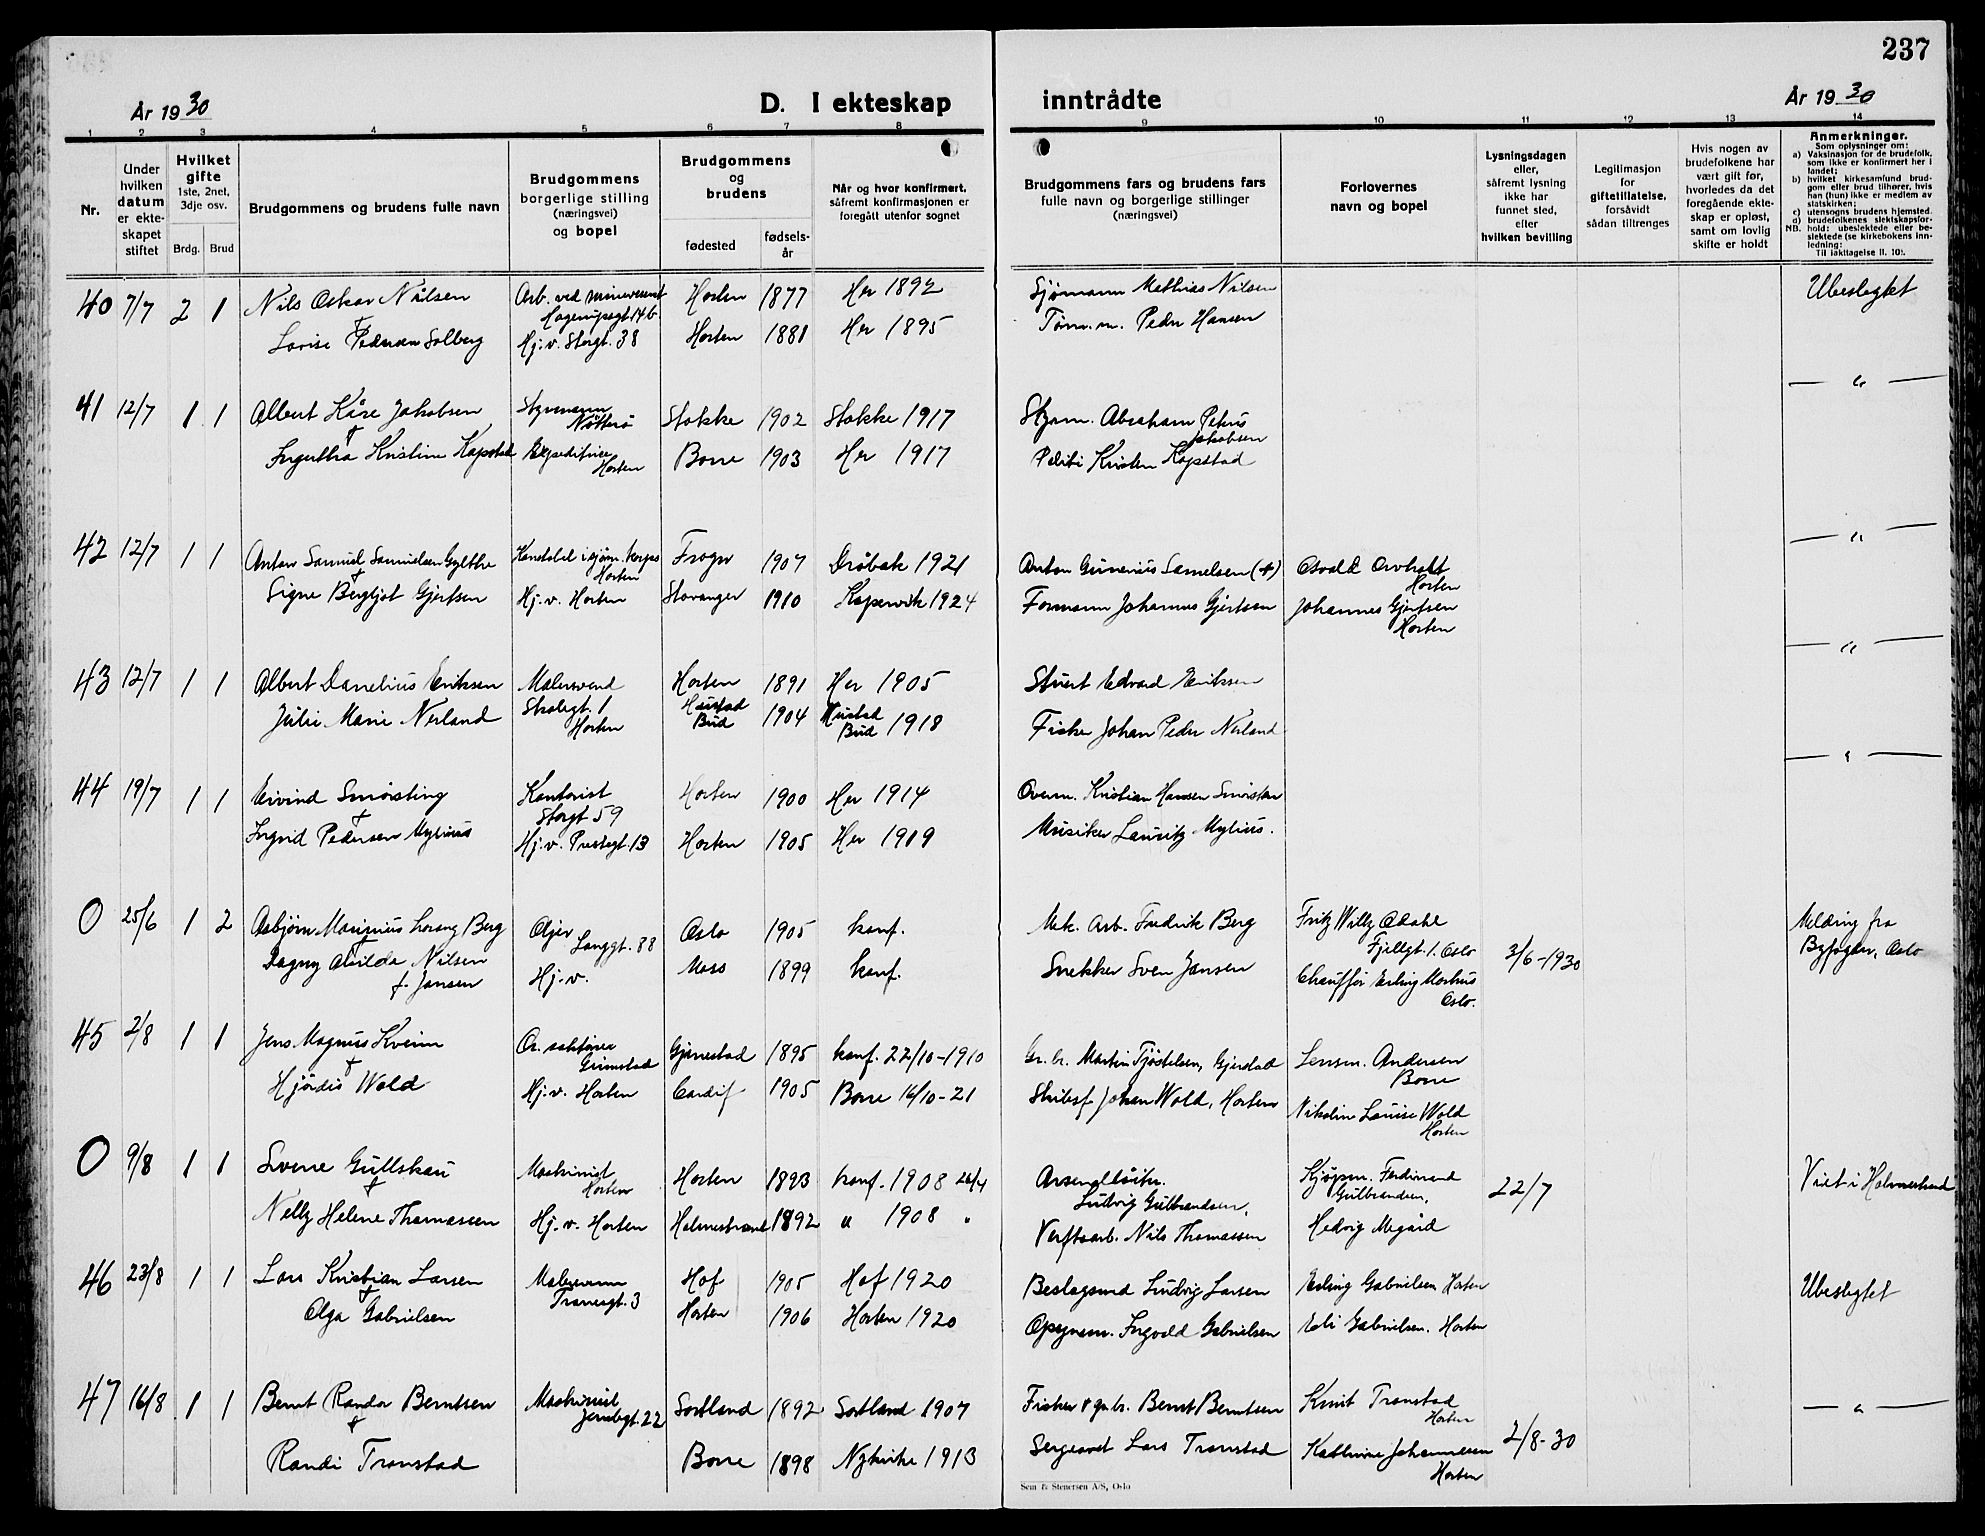 237
År 1930
D. I ekteskap inntrådte
År 1930
1 2 3 4 5 6 7 8 9 10 11 12 13 14
Nr.
Under hvilken datum er ekteskapet stiftet
Hvilket gifte 1ste, 2net, 3dje osv.
Brdg. Brud
Brudgommens og brudens fulle navn
Brudgommens borgerlige stilling (næringsvei) og bopel
Brudgommens og brudens
fødested
fødselsår
Når og hvor konfirmert, såfremt konfirmasjonen er foregått utenfor sognet
Brudgommens fars og brudens fars fulle navn og borgerlige stillinger (næringsvei)
Forlovernes navn og bopel
Lysningsdagen eller, såfremt lysning ikke har funnet sted, efter hvilken bevilling
Legitimasjon for giftetillatelse, forsåvidt sådan tiltrenges
Hvis nogen av brudefolkene har vært gift før, hvorledes da det foregående ekteskap er opløst, samt om lovlig skifte er holdt
Anmerkninger.
Som oplysninger om:
a) Vaksinasjon for de brudefolk, som ikke er konfirmert her i landet;
b) hvilket kirkesamfund brudgom eller brud tilhører, hvis han (hun) ikke er medlem av statskirken;
c) utensogns brudens hjemsted.
d) brudefolkenes slektskapsforhold: ubeslektede eller beslektede (se kirkebokens innledning:
NB. Til iakttagelse II. 10).
40 7/7 2 1 Nils Oskar Nilsen Arb. ved minevesenet Hagerupsgt. 14b. Horten 1877 Her 1892 Sjømann Mathias Nilsen Ubeslegtet
+ Lovise Pedersen Solberg Hj. v. Storgt. 38 Horten 1881 Her 1895 Tøm. m. Peder Hansen
41 12/7 1 1 Albert Kåre Jakobsen Styrmann Nøtterø Stokke 1902 Stokke 1917 Styrm. Abraham Petrus Jakobsen — " —
+ Ingertha Kristine Kapstad Ekspeditrise Horten Borre 1903 Her 1917 Politi Kristen Kapstad
42 12/7 1 1 Anton Samuel Samuelsen Gylthe Konstabel i sjøm. korps Horten Frogn 1907 Drøbak 1921 Anton Gunerius Samelsen (+) Osvald Horten — " —
+ Signe Bergljot Gjertsen Hj. v. Horten Stavanger 1910 Kopervik 1924 Formann Johannes Gjertsen Johannes Gjertsen Horten
43 12/7 1 1 Albert Danelius Eriksen Malersvend Skolegt. 1 Horten Horten 1891 Her 1905 Stuert Edvard Eriksen — " —
Julie Marie Nerland Hustad Bud 1904 Hustad Bud 1918 Fisker Johan Peder Nerland
44 19/7 1 1 Eivind Smørsting Kontorist Storgt 59 Horten 1900 Her 1914 Overm. Kristian Hansen — " —
+ Ingrid Pedersen Mylius Hj. v. Prestegt. 13 Horten 1905 Her 1919 Musiker Lauritz Mylius.
0 25/6 1 2 Asbjørn Marinius Berg Langgt. 88 Oslo 1905 konf. Mek. Arb. Fredrik Berg Fritz Willy Fjellgt. 1. Oslo 3/6-1930 Melding fra Byfogden, Oslo
+ Dagny Alvilda Nilsen f. Jansen Hj. v. Moss 1899 konf. Snekker Sven Jansen Chauffør Erling Oslo.
45 2/8 1 1 Jens Magnus Kveim Grimstad Gjerestad 1895 konf. 22/10-1910 Gr. br. Martin Tjøstelsen, Gjerstad Lensm. Andersen Borre
+ Hjördis Wold Hj. v. Horten Cardif 1905 Borre 16/10-21 Johan Wold, Horten Nikoline Louise Wold Horten
0 9/8 1 1 Sverre Gullskau Maskinist Horten Horten 1893 konf. 1908 26/4 Ludvig Gulbrandsen, Kjøpm. Ferdinand Gulbrandsen, 22/7 Viet i Holmestrand
+ Nelly Helene Thomassen Hj. v. Horten Holmestrand 1892 " 1908 " Verftsarb. Nils Thomassen Hedvig
46 23/8 1 1 Lars Kristian Larsen Tranesgt. 3 Hof 1905 Hof 1920 Beslagsmed Ludvig Larsen Erling Gabrielsen Horten Ubeslegtet
+ Olga Gabrielsen Horten 1906 Horten 1920 Opsynsm. Ingvald Gabrielsen Gabrielsen. Horten
47 16/8 1 1 Bernt Randor Berntsen Maskinist 22 Sortland 1892 Sortland 1907 Fisker & gr. br. Bernt Berntsen Knut Transtad Horten 2/8-30 — " —
+ Randi Transtad Borre 1898 Nykirke 1913 Sergeant Lars Transtad Kathrine Johannessen Horten
Sem & Stenersen A/S, Oslo